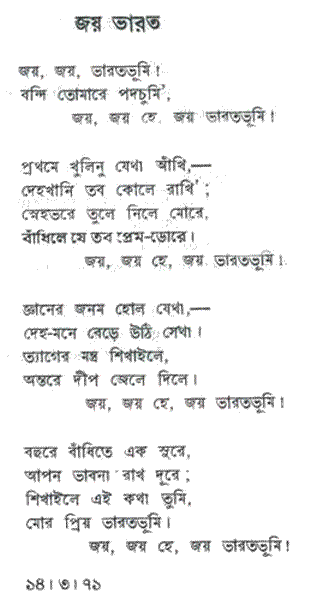 জয় ভারত
জয়, জয়, ভারতভূমি!
বন্দি তোমারে পদচুমি',
জয়, জয় হে, জয় ভারতভূমি!
প্রথমে খুলিনু যেথা আঁখি,—
দেহখানি তব কোলে রাখি';
স্নেহভরে তুলে নিলে মোরে,
বাঁধিলে যে তব প্রেম-ডোরে।
জয়, জয় হে, জয় ভারতভূমি!
জ্ঞানের জনম হোল যেথা,—
দেহ-মনে বেড়ে উঠি সেথা।
ত্যাগের মন্ত্র শিখাইলে,
অন্তরে দীপ জ্বেলে দিলে।
জয়, জয় হে, জয় ভারতভূমি!
বহুরে বাঁধিতে এক সুরে,
আপন ভাবনা রাখ দূরে;
শিখাইলে এই কথা তুমি,
মোর প্রিয় ভারতভূমি।
জয়, জয় হে, জয় ভারতভূমি!
১৪।৩।৭১